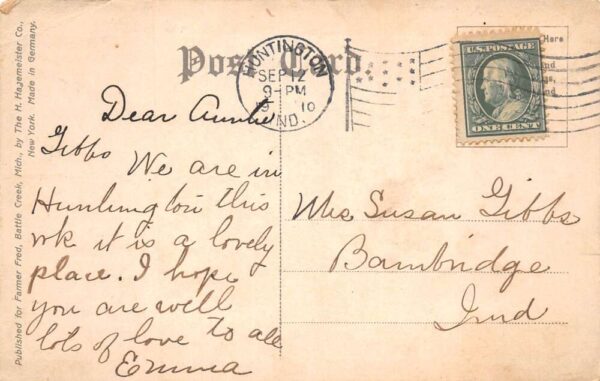 Published for Farmer Fred, Battle Creek, Mich., by The H. Hagemeister Co.,
New York. Made in Germany.
Post Card.
HUNTINGTON
SEP 12
9-PM
1910
IND.
Here
U.S. POSTAGE
ONE CENT
Dear Auntie
Gibbs
We are in
Huntington this
wk it is a lovely
place. I hope
you are well
lots of love to all
Emma
Mrs Susan Gibbs
Bambridge
Ind